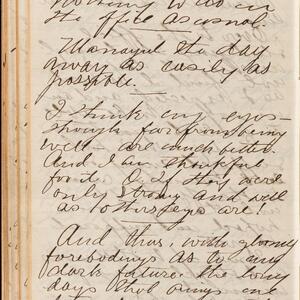 Nothing to do in
the office as usual.
Managed the day
away as easily as
possible.
I think my eyes -
though far from being
well - are much better.
And I am thankful
for it. O, if they were
only strong and well
as others eyes are!
And thus, with gloomy
forebodings as to my
dark future, the long
days that brings me